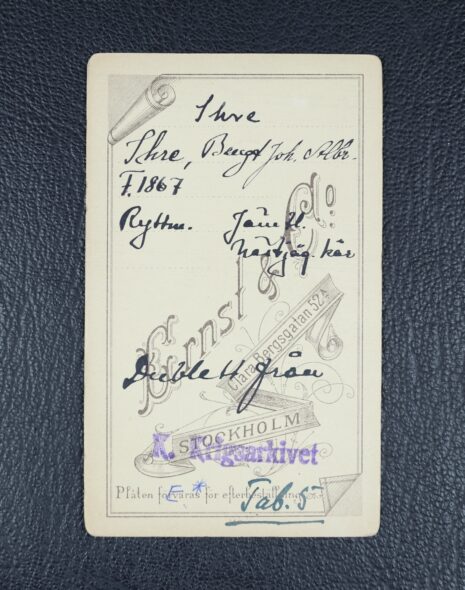 Ihre
Ihre, Bengt Joh. Albr.
F. 1867
Ryttm. Jämtl.
hästjäg. kår
Ernst & Co
Clara Bergsgatan 52A
Dublett från
STOCKHOLM
K. Krigsarkivet
Plåten förvaras för efterbeställning
E *
Tab. 5